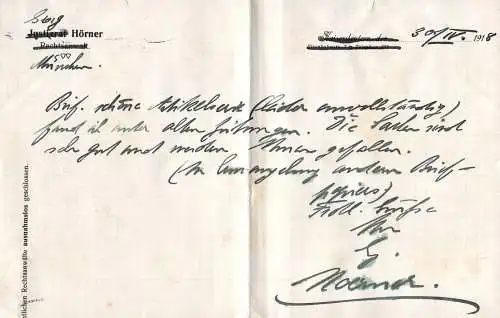 Justizrat Hörner
Rechtsanwalt
München
30/IV. 1918
schöne Artikelserie (leider unvollständig)
fand ich unter alten Zeitungen. Die Sachen sind
sehr gut und werden Ihnen gefallen.
(In Ermangelung anderen Brief-
papiers)
Frdl. Grüße
Ihr
G.
Hoerner.
tlichen Rechtsanwälte ausnahmslos geschlossen.